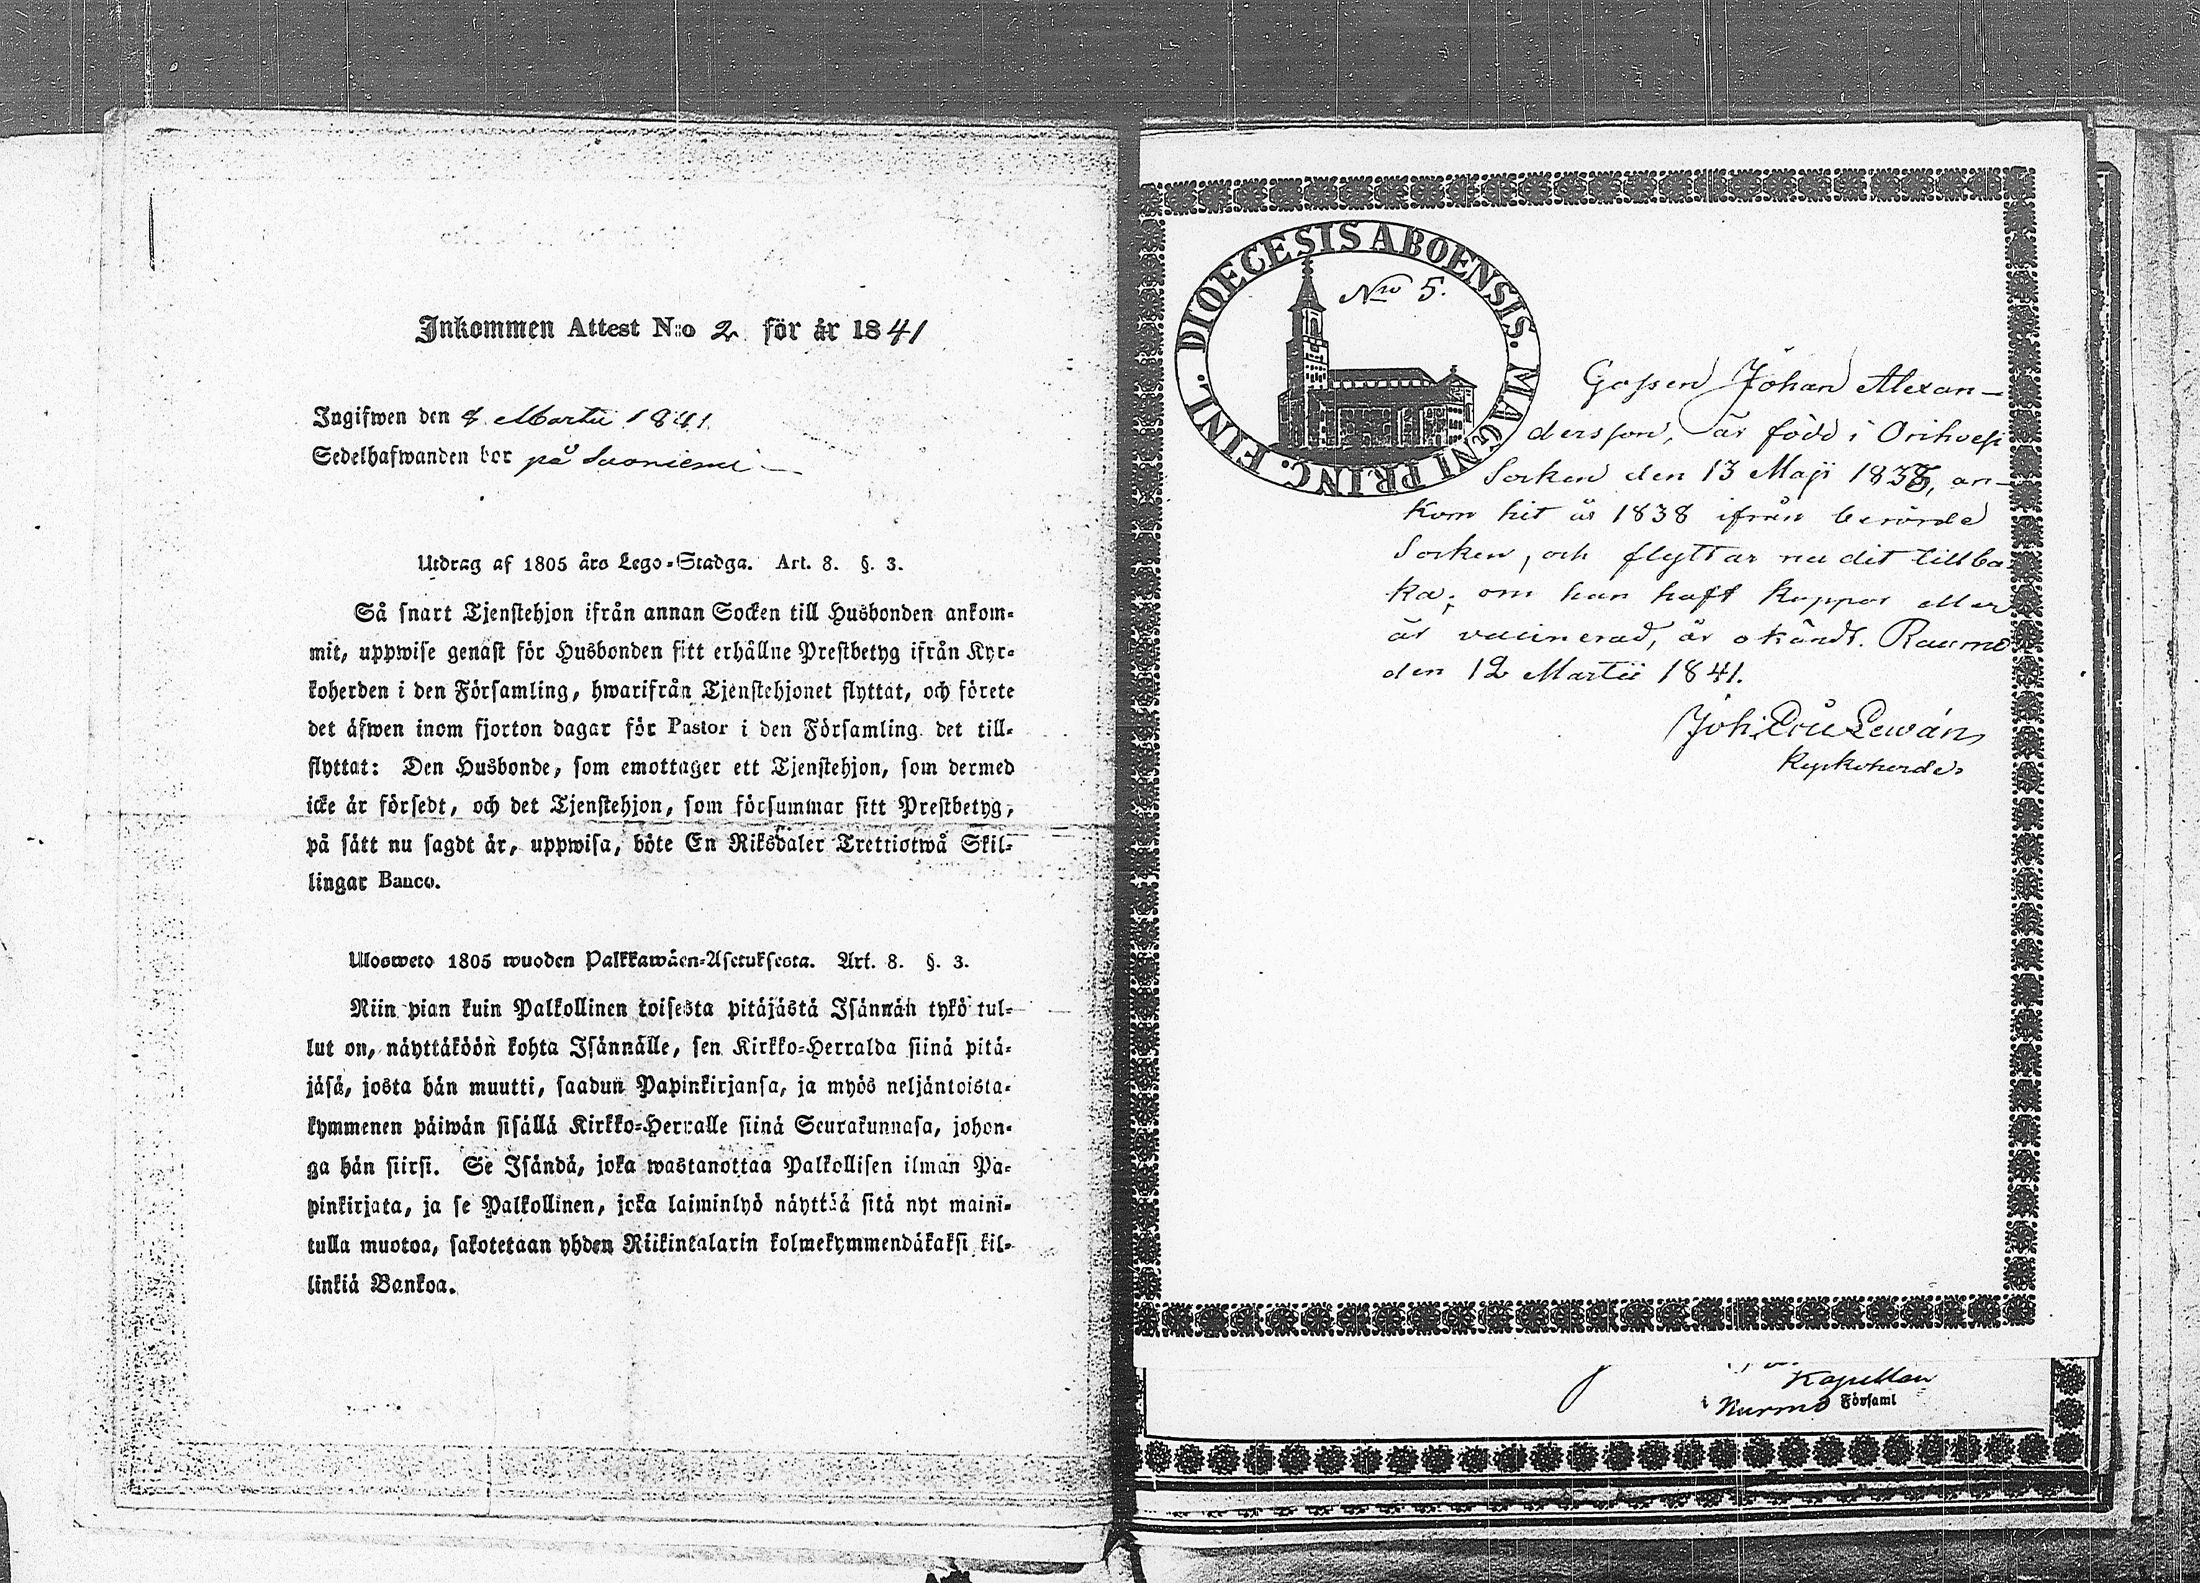 Inkommen Attest N:o 2 för år 1841
Ingifwen den 8 Martii 1841
Sedelhafwanden bor på Suoniemi
Utdrag af 1805 års Lego-Stadga. Art. 8. §. 3.
Så snart Tjenstehjon ifrån annan Socken till Husbonden ankom-
mit, uppwise genast för Husbonden sitt erhållne Prestbetyg ifrån Kyr-
koherden i den Församling, hwarifrån Tjenstehjonet flyttat, och förete
det äfwen inom fjorton dagar för Pastor i den Församling det till-
flyttat: Den Husbonde, som emottager ett Tjenstehjon, som dermed
icke är försedt, och det Tjenstehjon, som försummar sitt Prestbetyg,
på sätt nu sagdt är, uppwisa, böte En Riksdaler Trettiotwå Skil-
lingar Banco.
Ulosweto 1805 wuoden Palkkawäen-Asetuksesta. Art. 8. §. 3.
Niin pian kuin Palkollinen toisesta pitäjästä Isännän tykö tul-
lut on, näyttäköön kohta Isännälle, sen Kirkko-Herralda siinä pitä-
jäsä, josta hän muutti, saadun Papinkirjansa, ja myös neljäntoista-
kymmenen päiwän sisällä Kirkko-Herralle siinä Seurakunnasa, johon-
ga hän siirsi. Se Isändä, joka wastanottaa Palkollisen ilman Pa-
pinkirjata, ja se Palkollinen, joka laiminlyö näyttää sitä nyt maini-
tulla muotoa, sakotetaan yhden Riikintalarin kolmekymmendäkaksi kil-
linkiä Bankoa.
DIOECESIS ABOENSIS. MAGNI PRINC. FINL.
Nro 5.
Gossen Johan Alexan-
dersson, är född i Orihvesi
Socken den 13 Maji 1838, an-
kom hit år 1838 ifrån berörde
Socken, och flyttar nu dit tillba
ka; om han haft koppor eller
är vaccinerad, är okändt. Raumo
den 12 Martii 1841.
Joh. Lewán
Kyrkoherde
Kapellan
i Nurmo Församl